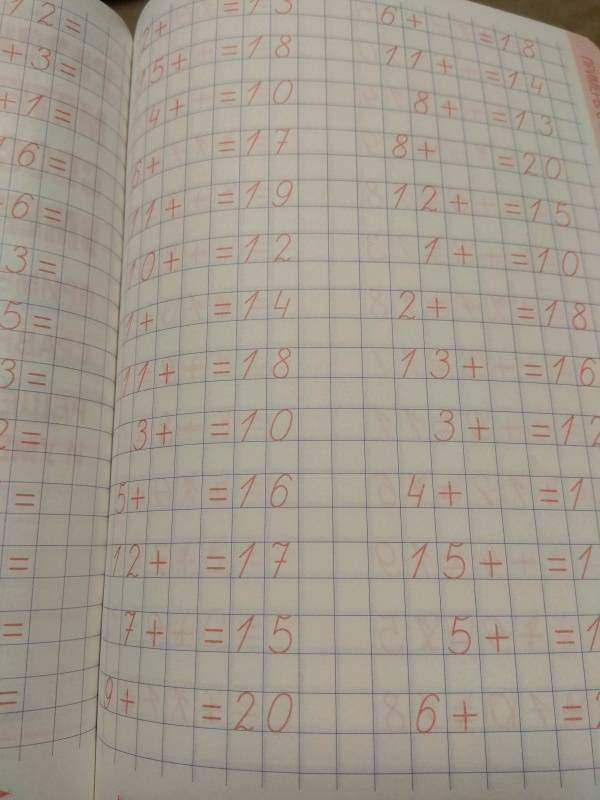 12=
+3=
+1=
16=
6=
3=
5=
3=
2=
=
=
=
=
2+ =13
15+ =18
4+ =10
6+ =17
11+ =19
10+ =12
1+ =14
11+ =18
3+ =10
5+ =16
12+ =17
7+ =15
9+ =20
6+ =18
11+ =14
8+ =13
8+ =20
12+ =15
1+ =10
2+ =18
13+ =16
3+ =12
4+ =1
15+ =1
5+ =1
6+ =